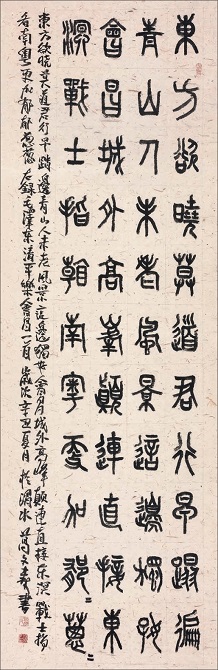 東方欲曉莫道君行早踏遍
青山人未老風景這邊獨好
會昌城外高峯顛連直接東
溟戰士指看南粵更加郁〻葱〻
東方欲曉莫道君行早踏遍青山人未老風景這邊獨好會昌城外高峰顛連直接東溟戰士指
看南粵更加郁郁葱葱 右錄毛澤東清平樂會昌一首歲次辛丑夏月於 書